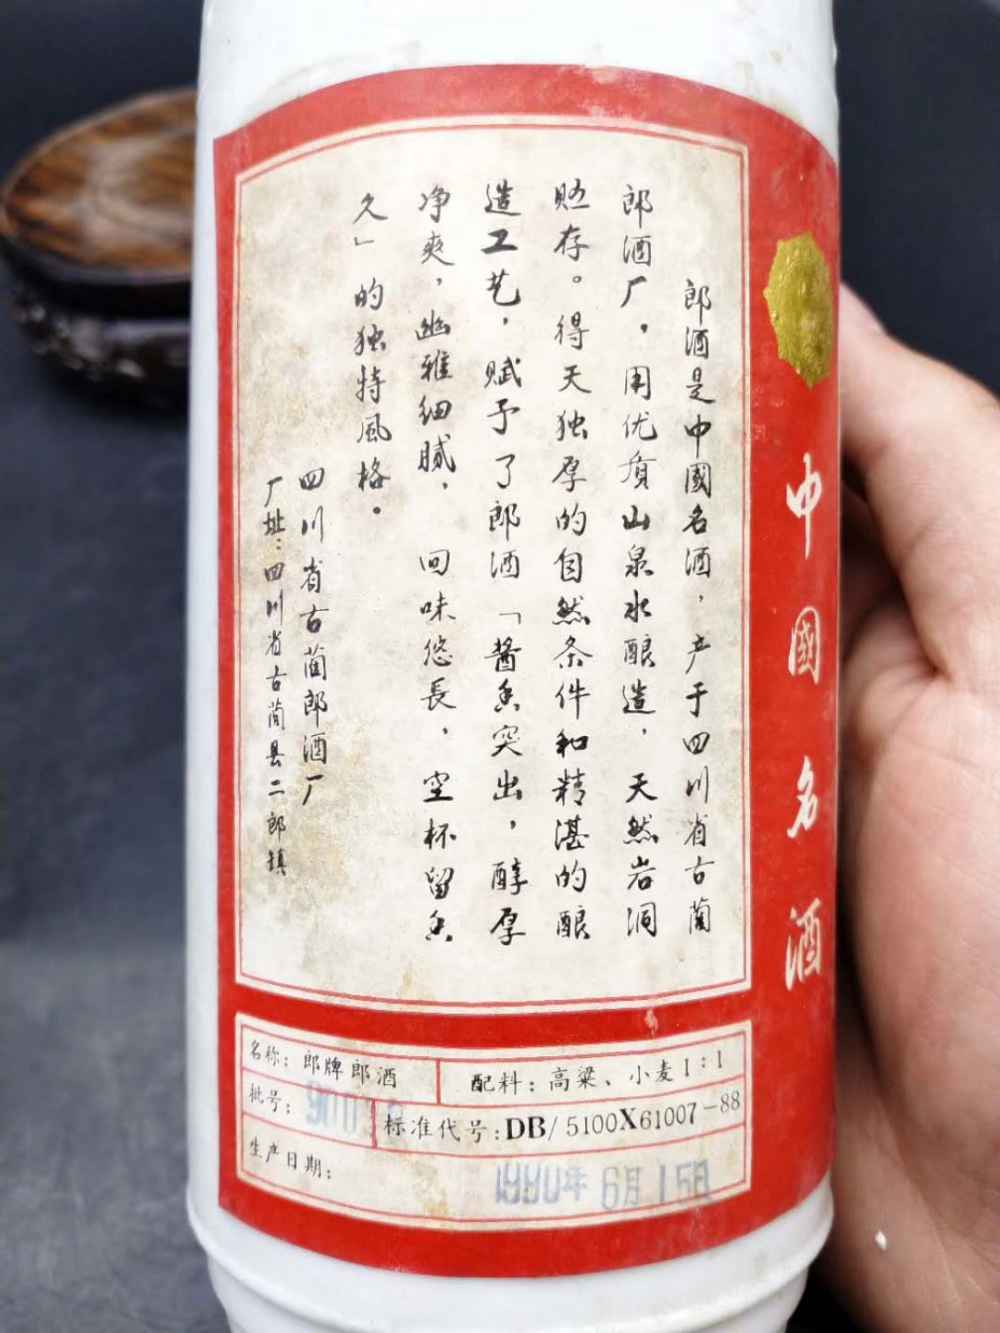 中國名酒
郎酒是中國名酒，产于四川省古藺
郎酒厂，用优质山泉水酿造，天然岩洞
贮存。得天独厚的自然条件和精湛的酿
造工艺，赋予了郎酒「酱香突出，醇厚
净爽，幽雅细腻，回味悠長，空杯留香
久」的独特風格。
四川省古藺郎酒厂
厂址：四川省古藺县二郎镇
名称：郎牌郎酒
配料：高粱、小麦1：1
批号：
标准代号：DB/5100X61007-88
生产日期：
1990年6月15日